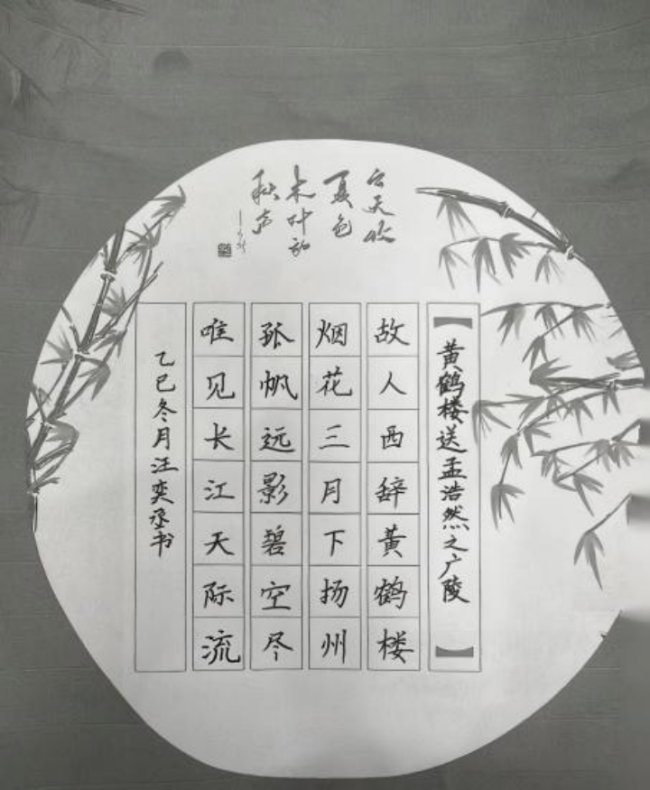 云天收
夏色
木叶动
秋声
【黄鹤楼送孟浩然之广陵】
故人西辞黄鹤楼
烟花三月下扬州
孤帆远影碧空尽
唯见长江天际流
乙巳冬月汪奕丞书